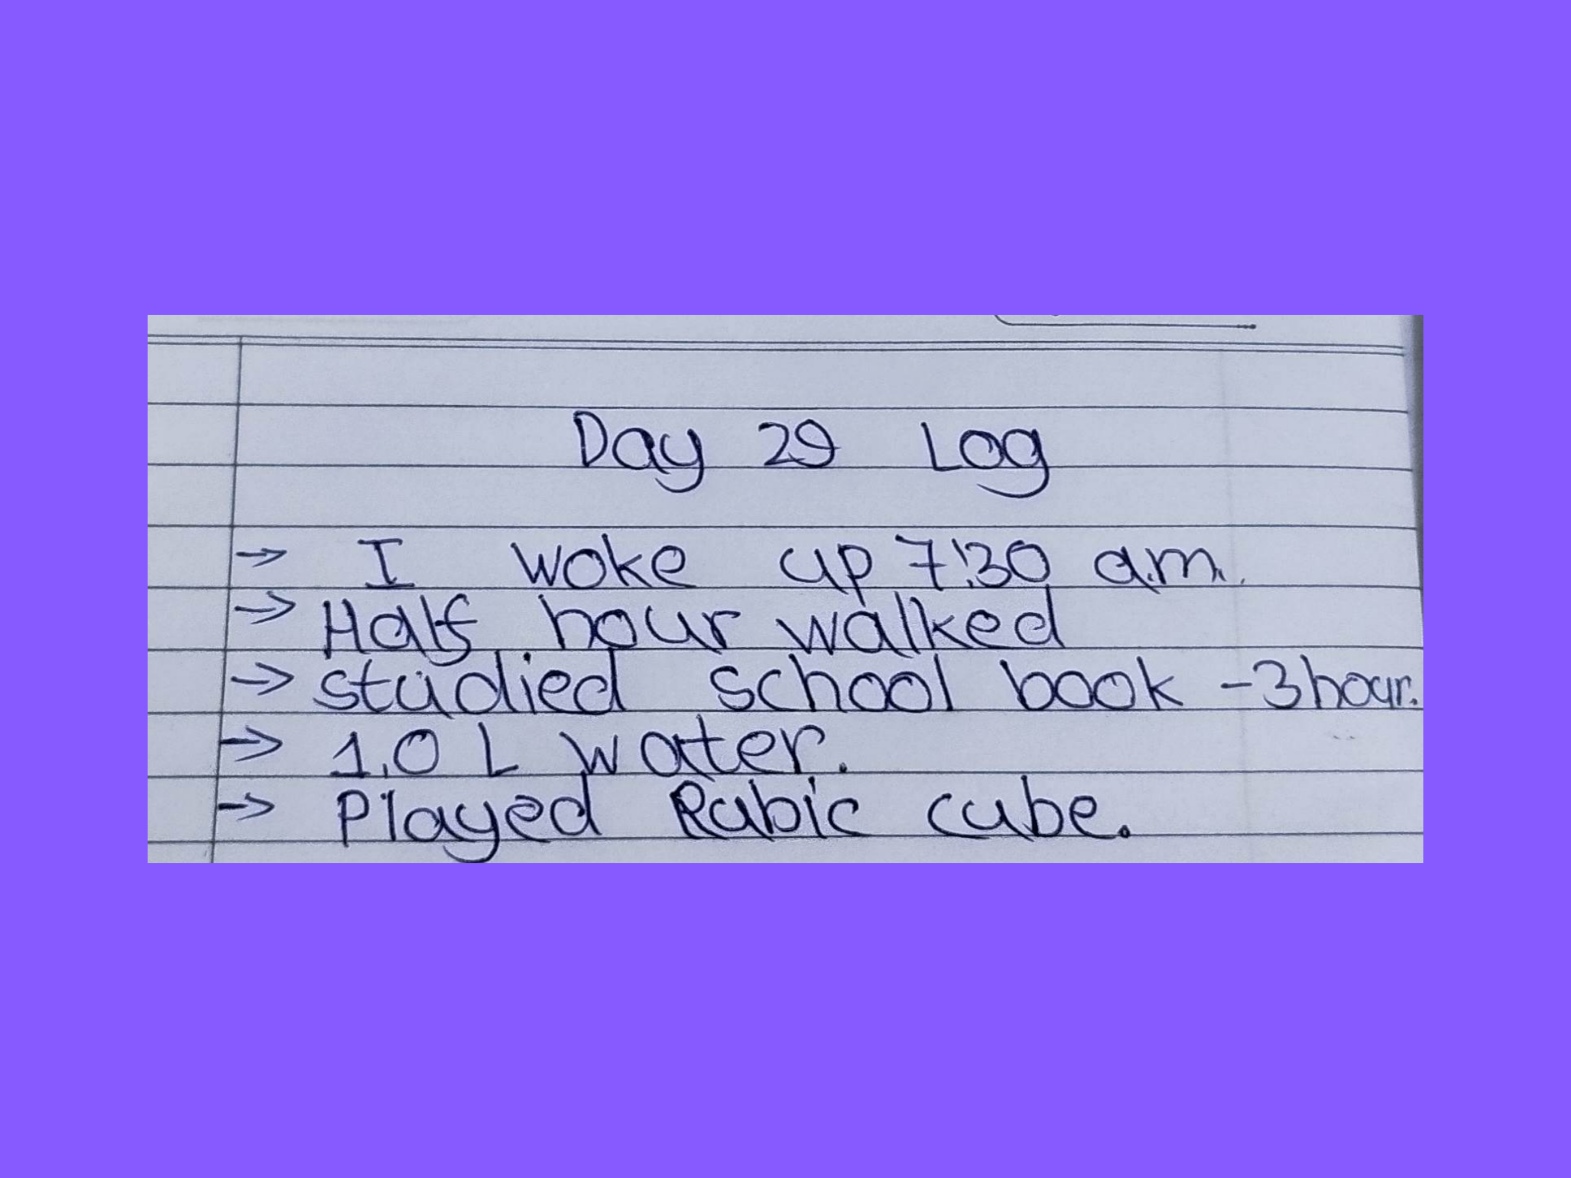 Day 29 Log
→ I woke up 7:30 a.m.
→ Half hour walked
→ studied school book - 3 hour.
→ 1.0 L water.
→ Played Rubic cube.